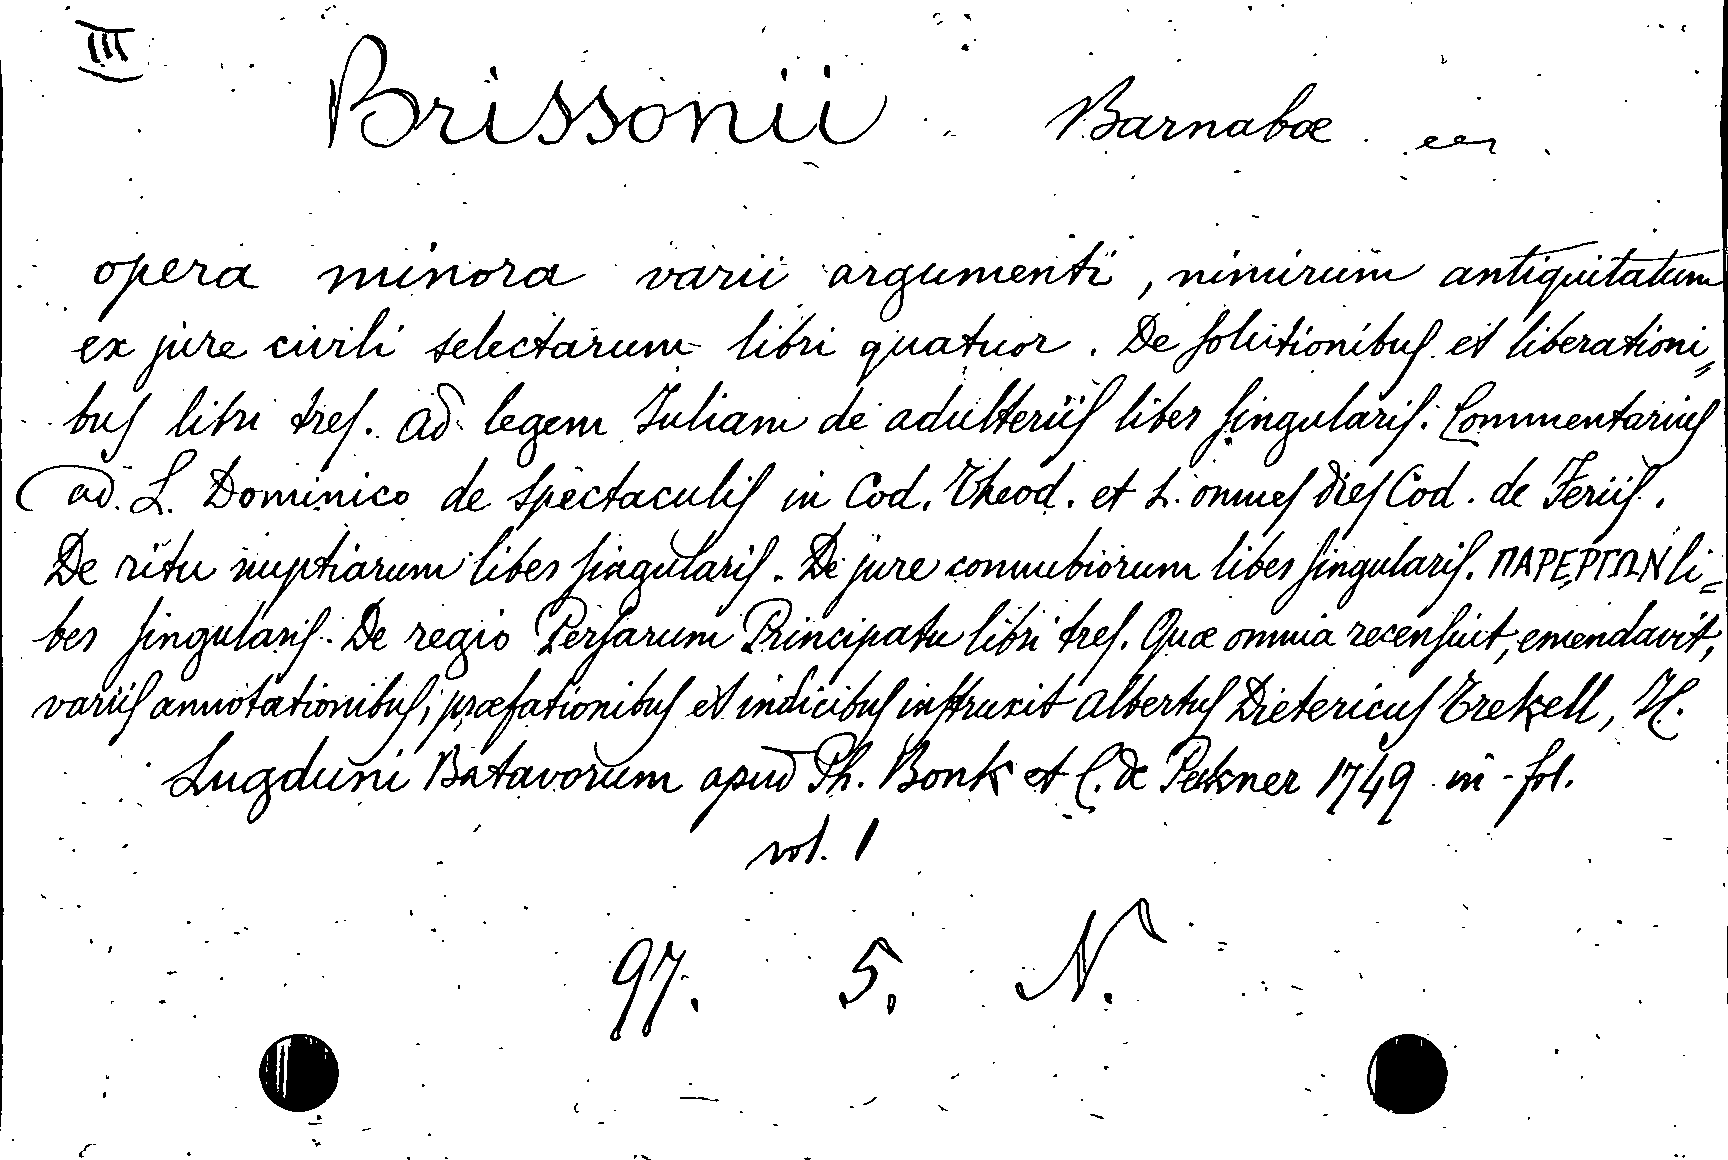 III
Brissonii Barnabæ
opera minora varii argumenti, nimirum antiquitatum
ex jure civili selectarum libri quatuor. De solutionibus et liberationi„
bus libri tres. Ad legem Juliam de adulteriis liber singularis. Commentarius
ad. L. Dominico de spectaculis in Cod. Theod. et L. omnes dies Cod. de Feriis.
De ritu nuptiarum liber singularis. De jure connubiorum liber singularis. ΠΑΡΕΡΓΩΝ li=
ber singularis. De regio Persarum Principatu libri tres. Quæ omnia recensuit, emendavit,
variis annotationibus, præfationibus et indicibus instruxit Albertus Dietericus Trekell,
Lugduni Batavorum apud Ph. Bonk et C. de Peckner 1749 in-fol.
vol. 1
97. 5. N.